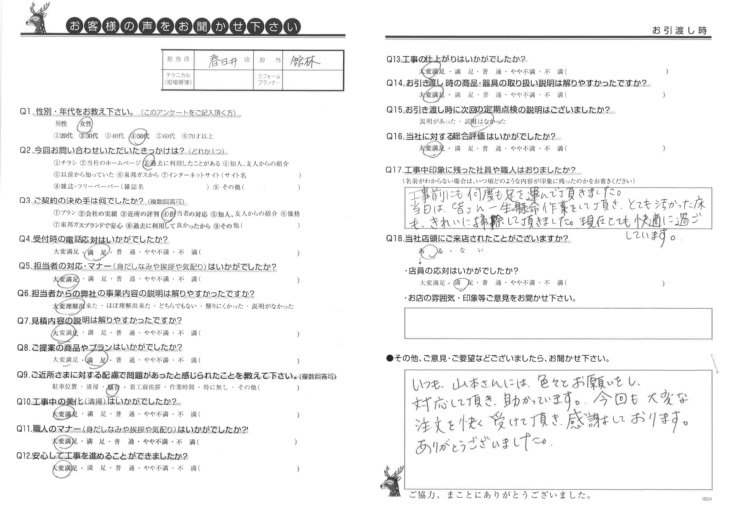 お客様の声をお聞かせ下さい
担当店 春日井 店 担当 館林
テクニカル(現場管理) リフォームプランナー
Q1.性別・年代をお教え下さい。(このアンケートをご記入頂く方)
男性 女性
①20代 ②30代 ③40代 ④50代 ⑤60代 ⑥70才以上
Q2.今回お問い合わせいただいたきっかけは?(どれか1つ)
①チラシ ②当社のホームページ ③過去に利用したことがある ④知人、友人からの紹介
⑤以前から知っていた ⑥東邦ガスから ⑦インターネットサイト(サイト名 )
⑧雑誌・フリーペーパー(雑誌名 ) ⑨その他( )
Q3.ご契約の決め手は何でしたか?(複数回答可)
①プラン ②会社の実績 ③近所の評判 ④担当者の対応 ⑤知人、友人からの紹介 ⑥価格
⑦東邦ガスブランドで安心 ⑧過去に利用して良かったから ⑨その他( )
Q4.受付時の電話応対はいかがでしたか?
大変満足・満 足・普 通・やや不満・不 満( )
Q5.担当者の対応・マナー(身だしなみや挨拶や気配り)はいかがでしたか?
大変満足・満 足・普 通・やや不満・不 満( )
Q6.担当者からの弊社の事業内容の説明は解りやすかったですか?
大変理解出来た・ほぼ理解出来た・どちらでもない・解りにくかった・説明がなかった
Q7.見積内容の説明は解りやすかったですか?
大変満足・満 足・普 通・やや不満・不 満( )
Q8.ご提案の商品やプランはいかがでしたか?
大変満足・満 足・普 通・やや不満・不 満( )
Q9.ご近所さまに対する配慮で問題があったと感じられたことを教えて下さい。(複数回答可)
駐車位置・清掃・騒音・着工前挨拶・作業時間・特に無し・その他( )
Q10.工事中の美化(清掃)はいかがでしたか?
大変満足・満 足・普 通・やや不満・不 満( )
Q11.職人のマナー(身だしなみや挨拶や気配り)はいかがでしたか?
大変満足・満 足・普 通・やや不満・不 満( )
Q12.安心して工事を進めることができましたか?
大変満足・満 足・普 通・やや不満・不 満( )
お引渡し時
Q13.工事の仕上がりはいかがでしたか?
大変満足・満 足・普 通・やや不満・不 満( )
Q14.お引き渡し時の商品・器具の取り扱い説明は解りやすかったですか?
大変満足・満 足・普 通・やや不満・不 満( )
Q15.お引き渡し時に次回の定期点検の説明はございましたか?
説明があった・説明はなかった
Q16.当社に対する総合評価はいかがでしたか?
大変満足・満 足・普 通・やや不満・不 満( )
Q17.工事中印象に残った社員や職人はおりましたか?
(名前がわからない場合は、いつ頃どのような内容が印象に残ったのかをお書きください)
工事前にも何度も足を運んで頂きました。
当日は、皆さん一生懸命作業をして頂き、とても汚かった床
も、きれいに掃除して頂きました。現在とても快適に過ご
しています。
Q18.当社店頭にご来店されたことがございますか?
あ る・な い
・店員の応対はいかがでしたか?
大変満足・満 足・普 通・やや不満・不 満( )
・お店の雰囲気・印象等ご意見をお聞かせ下さい。
●その他、ご意見・ご要望などございましたら、お聞かせ下さい。
いつも、山本さんには、色々とお願いをし、
対応して頂き、助かっています。今回も大変な
注文を快く受けて頂き、感謝しております。
ありがとうございました。
ご協力、まことにありがとうございました。
1604